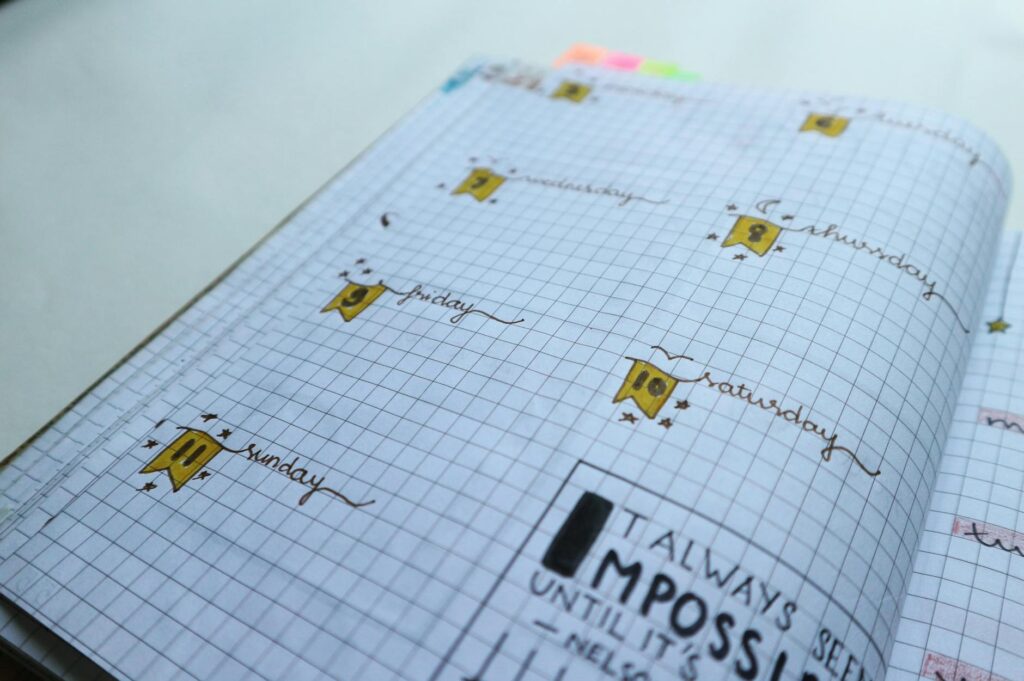 6
7 wednesday
8 thursday
9 friday
10 saturday
11 sunday
IT ALWAYS SEEM
IMPOSSI
UNTIL IT'S
— NELSO